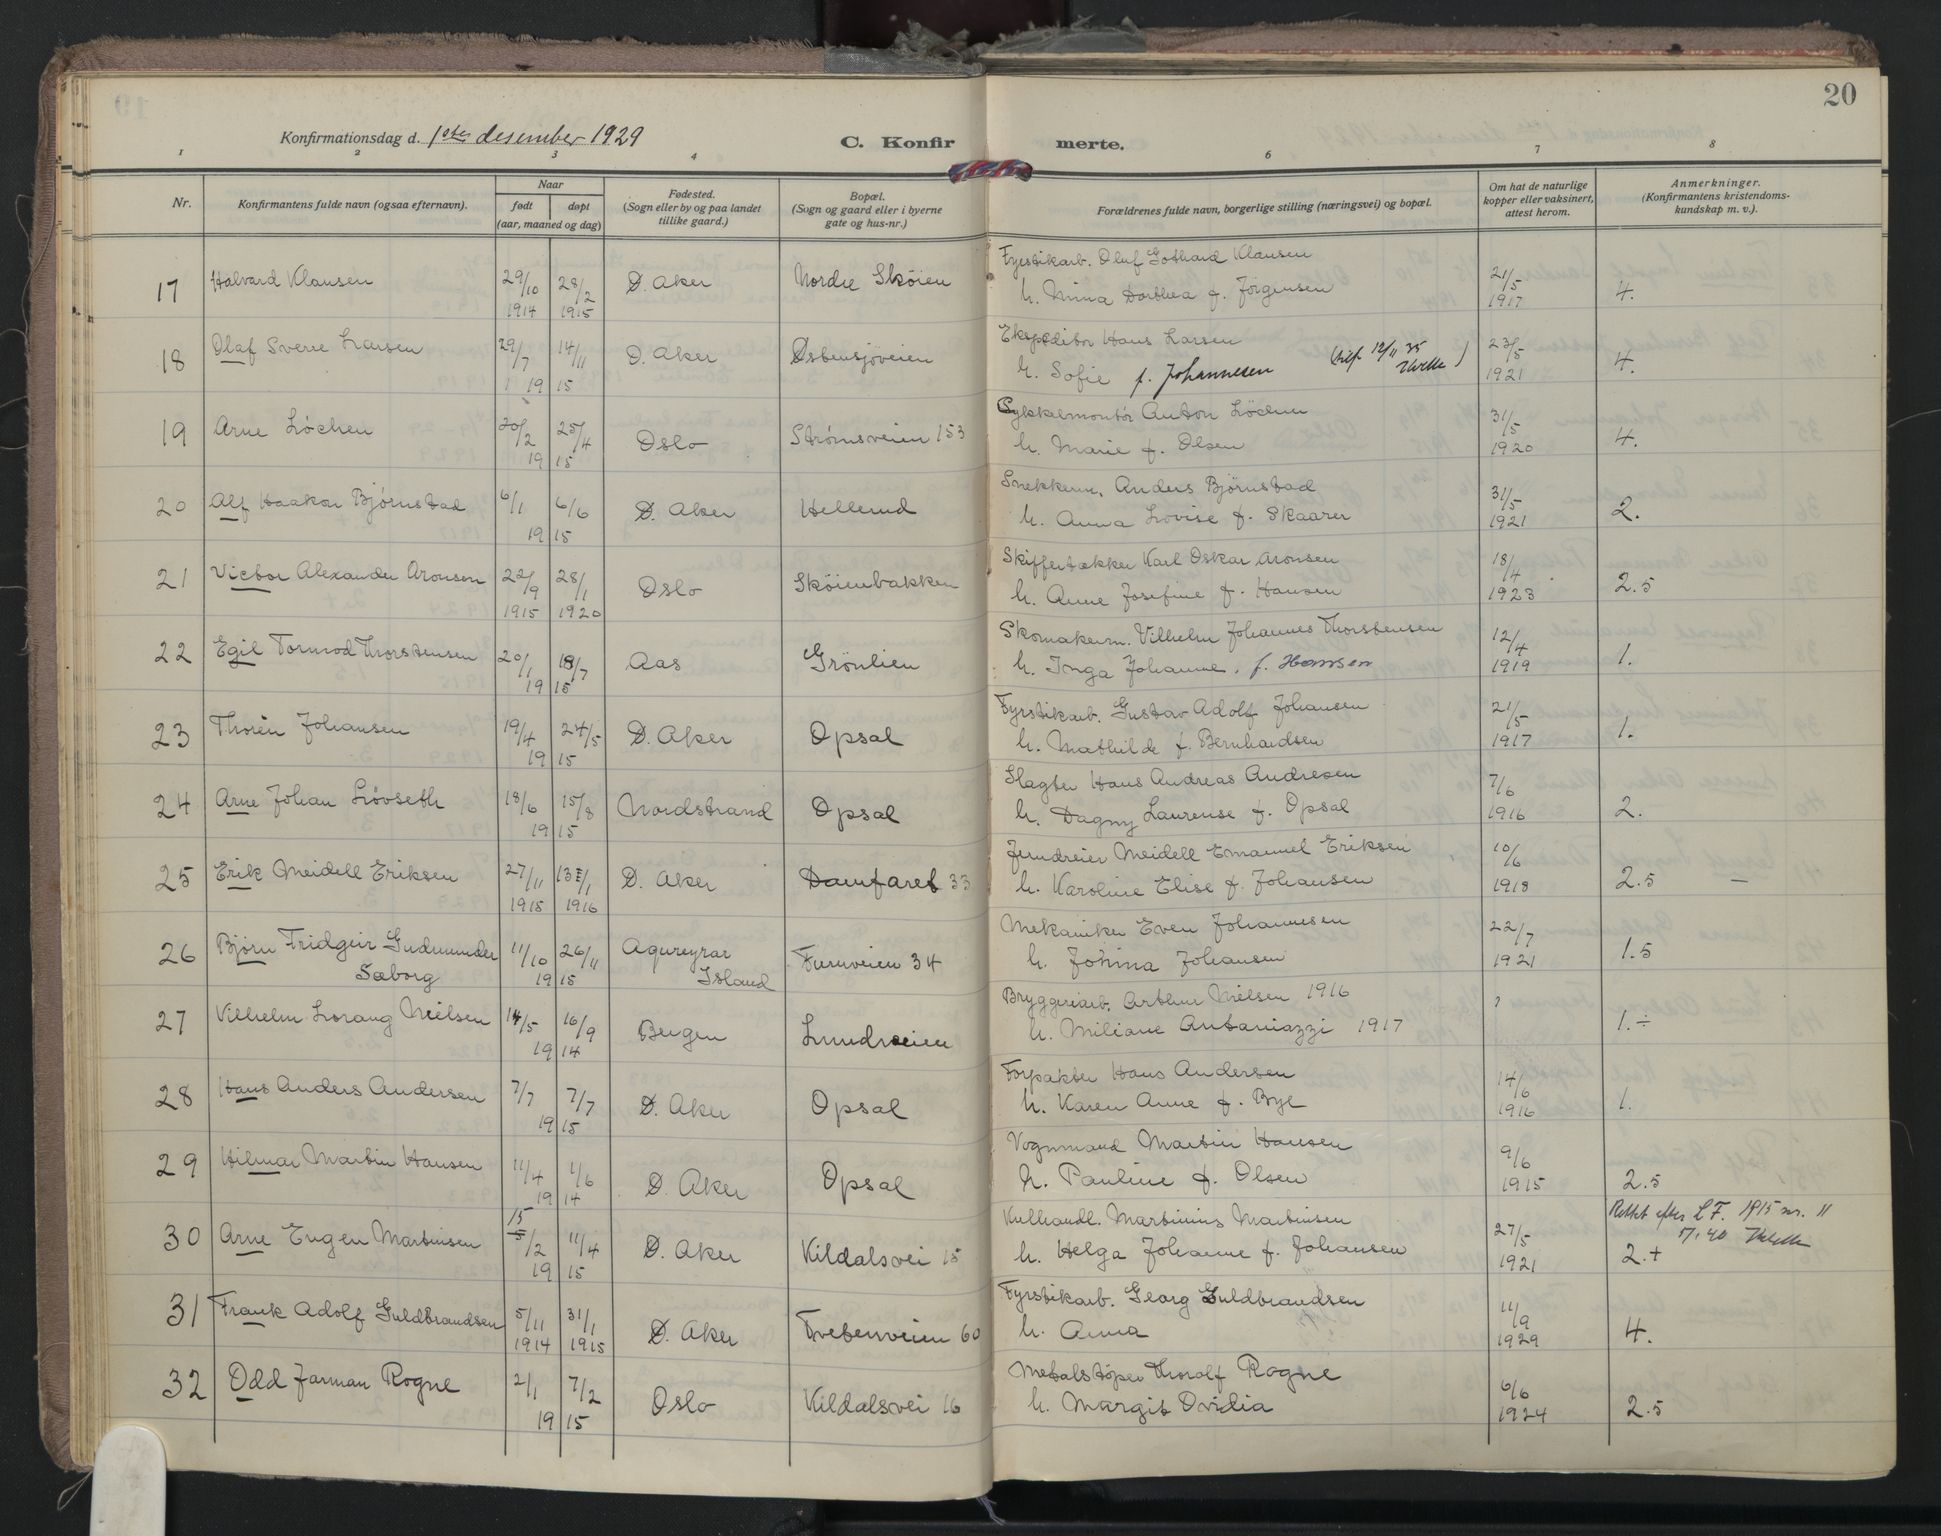 20
Konfirmationsdag d. 1ste desember 1929
C. Konfirmerte.
1 2 3 4 6 7 8
Nr.
Konfirmantens fulde navn (ogsaa efternavn).
Naar
født døpt
(aar, maaned og dag)
Fødested.
(Sogn eller by og paa landet
tillike gaard.)
Bopæl.
(Sogn og gaard eller i byerne
gate og hus-nr.)
Forældrenes fulde navn, borgerlige stilling (næringsvei) og bopæl.
Om hat de naturlige
kopper eller vaksinert,
attest herom.
Anmerkninger.
(Konfirmantens kristendoms-
kundskap m. v.).
17 Halvard Klausen 29/10 1914 28/2 1915 Ø. Aker Nordre Skøien Fyrstikarb. Oluf Gothard Klausen
h. Mina Dorthea f. Jörgensen 21/5 1917 4.
18 Olaf Sverre Larsen 29/7 14/11 1915 Ø. Aker Østensjöveien Ekspeditor Hans Larsen
h. Sofie f. Johannesen 23/5 1921 4.
19 Arne Löchen 20/2 25/4 1915 Oslo Strömsveien 153 Sykkelmontör Anton Löchen
h. Marie f. Olsen 31/5 1920 4.
20 Alf Haakon Bjørnstad 6/1 6/6 1915 Ø. Aker Hellerud Snekkerm. Anders Bjørnstad
h. Anna Lovise f. Skaarer 31/5 1921 2.
21 Victor Alexander Aronsen 22/9 1915 28/1 1920 Oslo Sköienbakken Skiffertækker Karl Oskar Aronsen
h. Anne Josefine f. Hansen 18/4 1923 2.5
22 Egil Tormod Thorstensen 20/1 18/7 1915 Aas Grönlien Skomakerm. Vilhelm Johannes Thorstensen
h. Inga Johanne, f. Hansen 12/4 1919 1.
23 Thorin Johansen 19/4 24/5 1915 Ø. Aker Opsal Fyrstikarb. Gustav Adolf Johansen
h. Mathilde f. Bernhardsen 21/5 1917 1.
24 Arne Johan Lövseth 18/6 15/8 1915 Nordstrand Opsal Slagter Hans Andreas Andresen
h. Dagny Laurense f. Opsal 7/6 1916 2.
25 Erik Meidell Eriksen 27/11 1915 13/1 1916 Ø. Aker Damfaret 33 Jerndreier Meidell Emanuel Eriksen
h. Karoline Elise f. Johansen 10/6 1918 2.5 —
26 Bjørn Fridgeir Gudmunder
Sæborg 11/10 26/11 1915 Aqureyrar
Island Furuveien 34 Mekaniker Even Johannesen
h. Johina Johansen 22/7 1921 1.5
27 Vilhelm Lorang Nielsen 14/5 16/9 1914 Bergen Lundveien Bryggeriarb. Arthur Nielsen 1916
h. Miliane Antaniazzi 1917 ? 1.÷
28 Hans Anders Andersen 7/7 7/7 1915 Ø. Aker Opsal Forpakter Hans Andersen
h. Karen Anne f. Bye 14/6 1916 1.
29 Hilmar Martin Hansen 11/4 1/6 1914 Ø. Aker Opsal Vognmand Martin Hansen
h. Pauline f. Olsen 9/6 1915 2.5
30 Arne Eugen Martinsen 15 5/2 11/4 1915 Ø. Aker Kildalsvei 15 Kulhandl. Martinius Martinsen
h. Helga Johanne f. Johansen 27/5 1921 Rettet efter L.F. 1915 nr. 11
2.+
31 Frank Adolf Guldbrandsen 5/11 1914 31/1 1915 Ø. Aker Tvetenveien 60 Fyrstikarb. Georg Guldbrandsen
h. Anna 11/9 1929 4.
32 Odd Jarman Rogne 2/1 7/2 1915 Oslo Kildalsvei 16 Metalstøper Thorolf Rogne
h. Margit Ovidia 6/6 1924 2.5